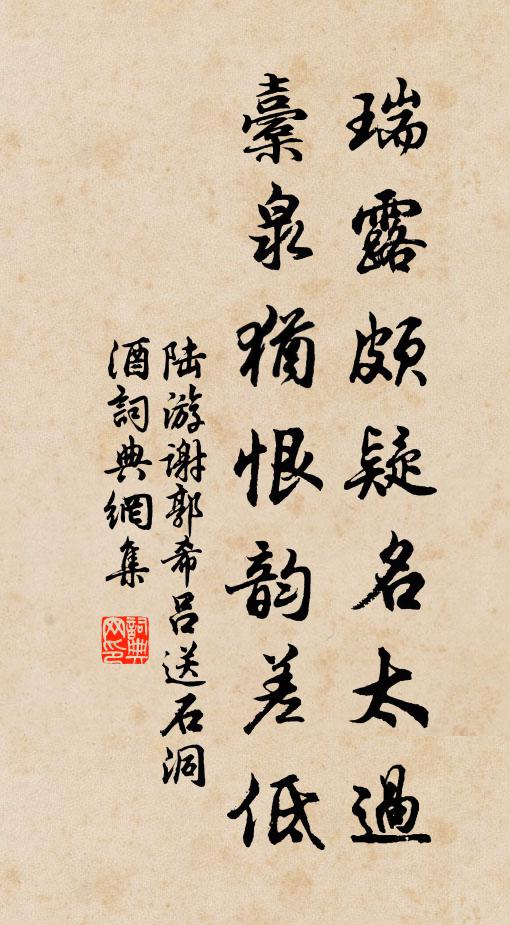 瑞露頗疑名太過
橐泉猶恨韵差低
陆游谢郭希吕送石洞
酒詞典網集
詞典网印